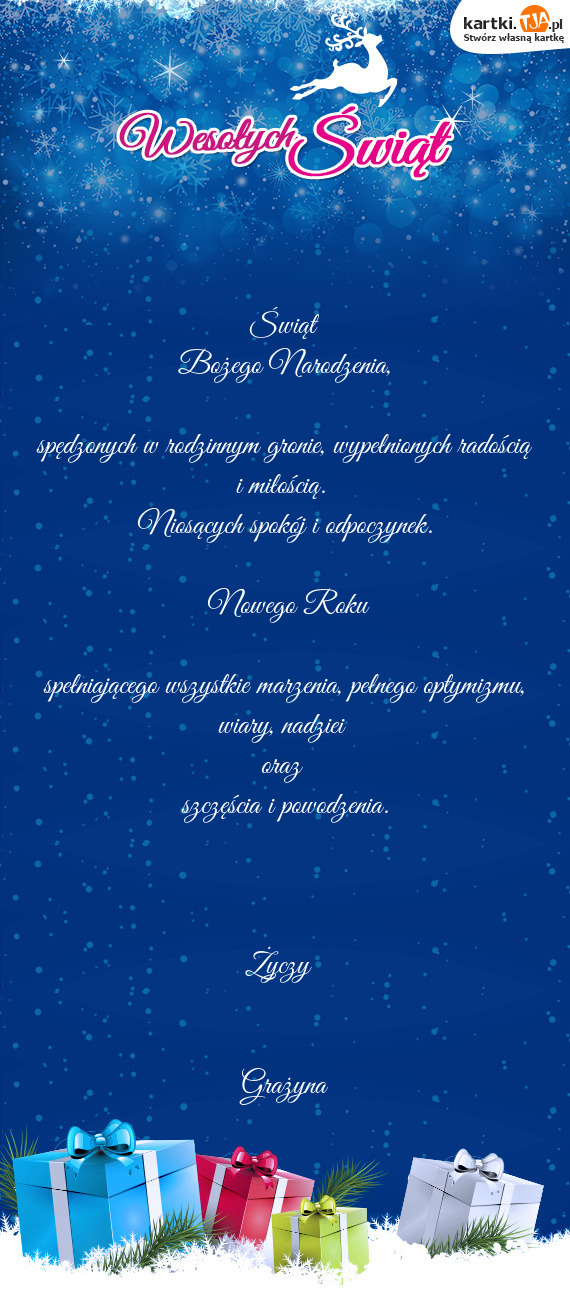 kartki.TJA.pl
Stwórz własną kartkę
Wesołych Świąt
Świąt
Bożego Narodzenia,
spędzonych w rodzinnym gronie, wypełnionych radością
i miłością.
Niosących spokój i odpoczynek.
Nowego Roku
spełniającego wszystkie marzenia, pełnego optymizmu,
wiary, nadziei
oraz
szczęścia i powodzenia.
Życzy
Grażyna